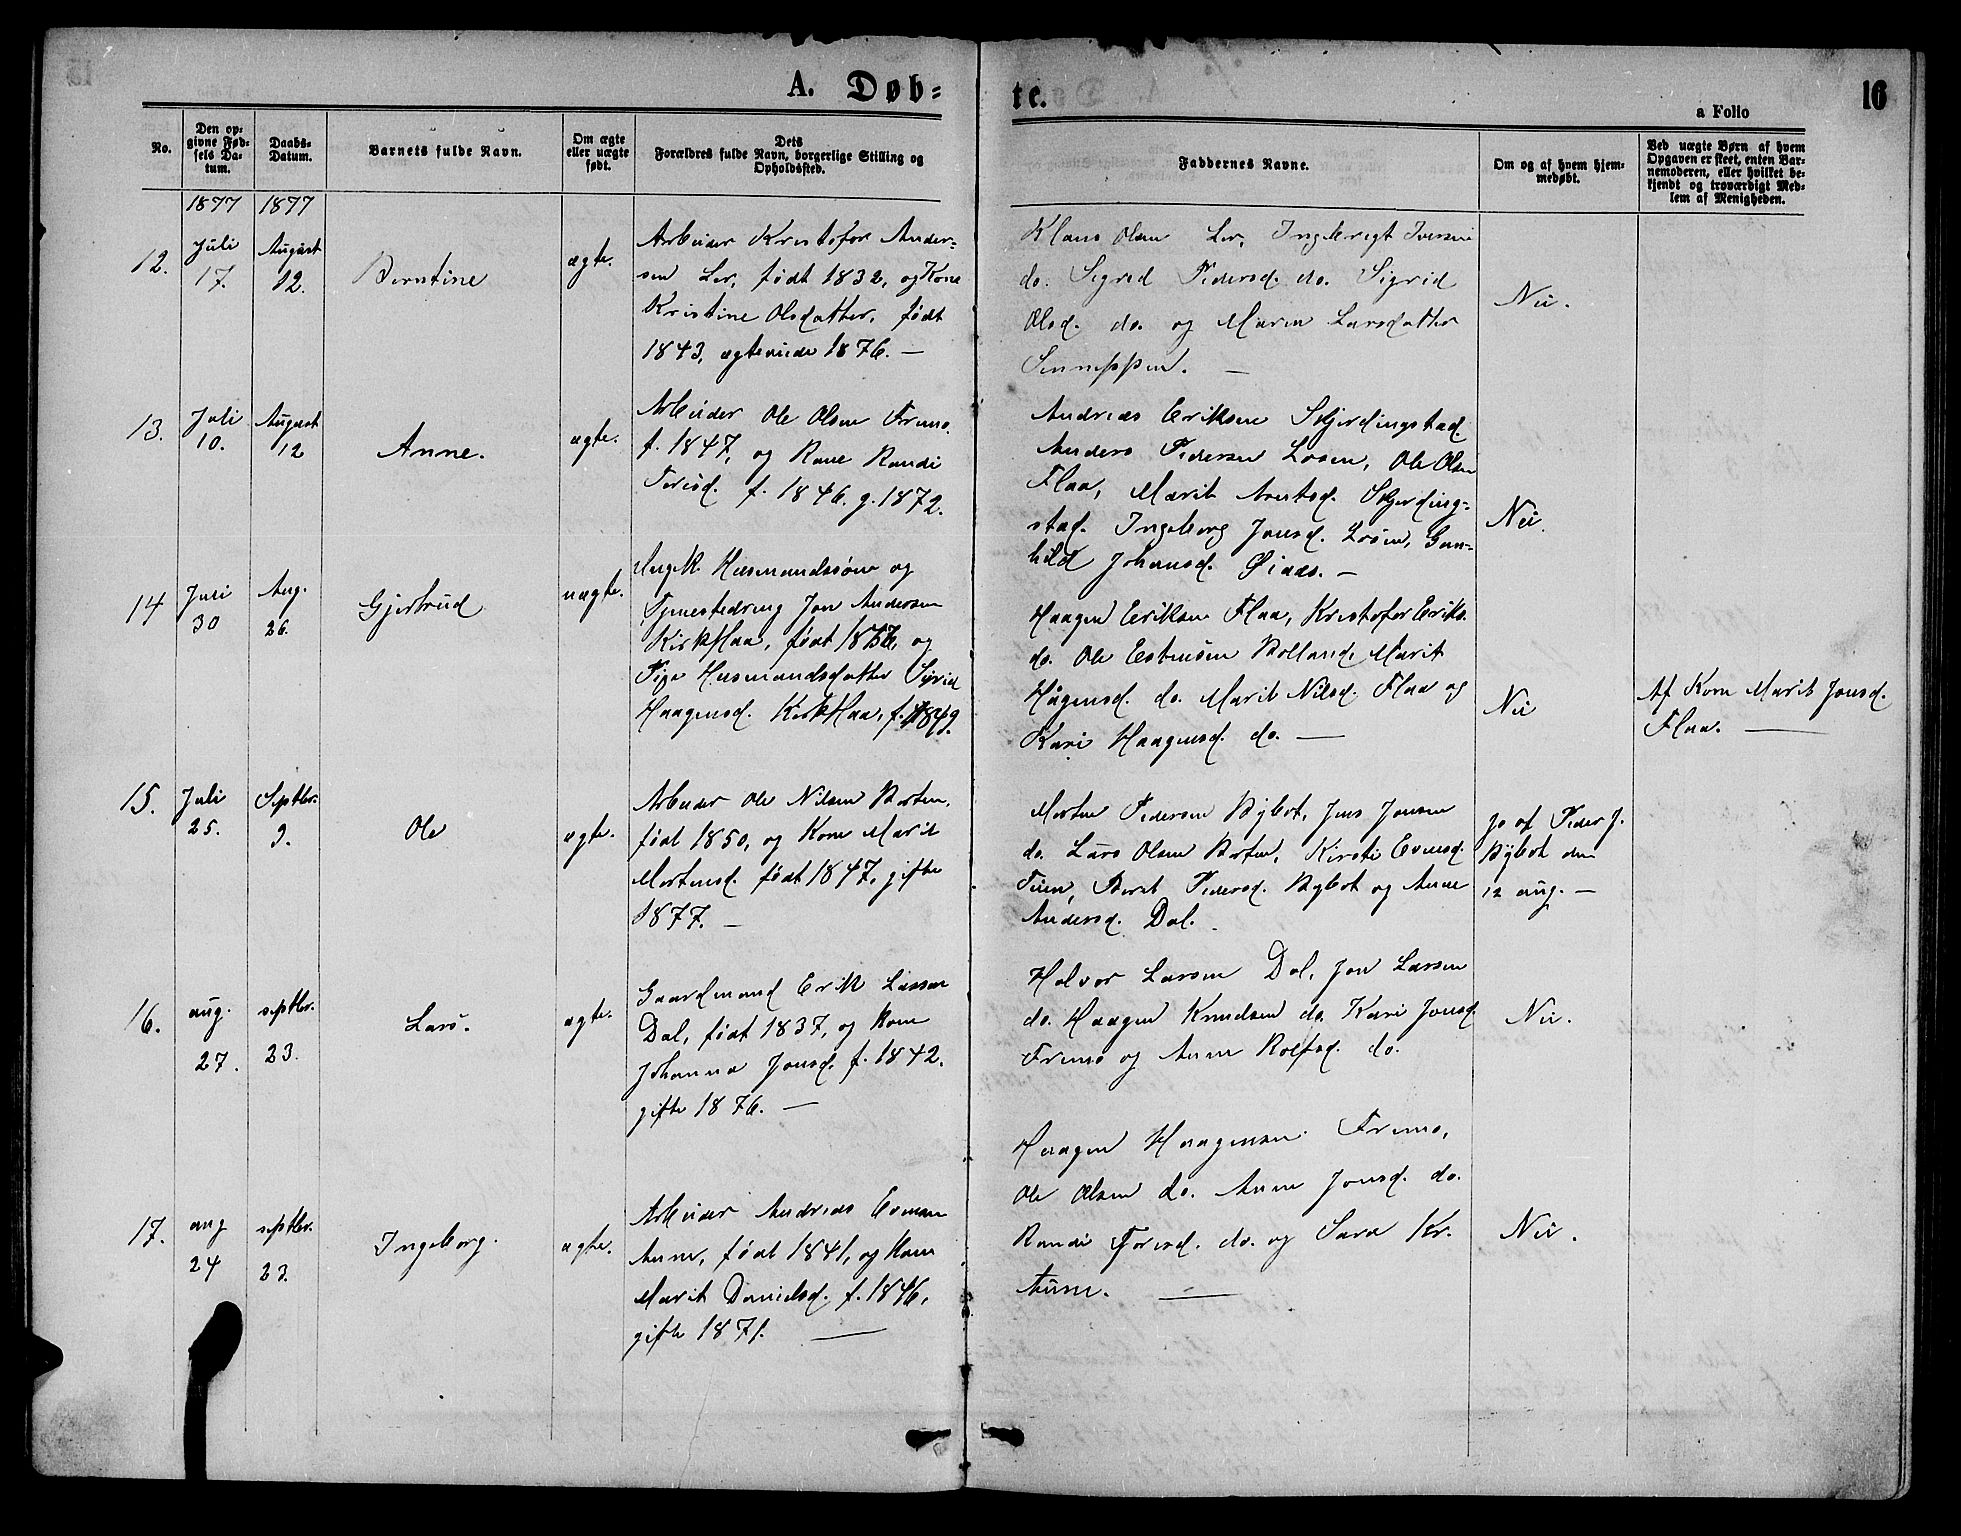 A. Døb=
te.
16
a Folio
No.
Den op-
givne Fød-
sels Da-
tum.
Daabs-
Datum.
Barnets fulde Navn.
Om ægte
eller uægte
født.
Dets
Forældres fulde Navn, borgerlige Stilling og
Opholdssted.
Faddernes Navne.
Om og af hvem hjem-
medøbt.
Ved uægte Børn af hvem
Opgaven er skeet, enten Bar-
nemoderen, eller hvilket be-
kjendt og troværdigt Med-
lem af Menigheden.
1877
1877
12.
Juli
17.
August
12.
Berntine
ægte.
Arbeider Kristofor Ander=
sen Ler, født 1832, og Kone
Kristine Olsdatter, født
1843, ægteviede 1876. —
Klaus Olsen Ler, Ingebrigt Iversen
do. Sigrid Pedersd. do. Sigrid
Olsd. do. og Maren Larsdatter
Nei.
13.
Juli
10.
August
12
Anne.
ægte.
Arbeider Ole Olsen Fremo.
f. 1847, og Kone Randi
Toresd. f. 1846. g. 1872.
Andreas Eriksen Skjerdingstad.
Anders Pedersen Løsen, Ole Olsen
Flaa, Marit Arntsd. Skjerding=
stad. Ingeborg Jonsd. Løsen, Gun=
hild Johansd. Øiaas. —
Nei.
14
Juli
30
Aug.
26.
Gjertrud
uægte.
Ungk. Husmandssøn og
Tjenestedreng Jon Andersen
Kirkflaa, født 1856, og
Pige Husmandsdatter Sigrid
Haagensd. Kirkflaa, f. 1849.
Haagen Eriksen Flaa, Kristofer Eriks.
do. Ole Estensen Volland, Marit
Hågensd. do. Marit Nilsd. Flaa og
Kari Haagensd. do. —
Nei
Af Kone Marit Jonsd.
Flaa. —
15.
Juli
25.
Septbr.
9.
Ole
ægte.
Arbeider Ole Nilsen Borten,
født 1850, og Kone Marit
Mortensd. født 1847, gifte
1877. —
Morten Pedersen Bybrot, Jens Jonsen
do. Lars Olsen Borten, Kirsti Evensd.
Berit Pedersd. Bybrot og Anne
Andersd. Dal.
Jo af Peder J.
Bybrot den
12 aug. —
16.
aug.
27.
septbr.
23.
Lars.
ægte.
Gaardmand Erik Larsen
Dal, født 1837, og Kone
Johanna Jonsd. f. 1842.
gifte 1876. —
Halvor Larsen Dal, Jon Larsen
do. Haagen Knudsen do. Kari Jonsd.
Fremo og Anne Rolfsd. do.
Nei.
17.
aug
24
septbr.
23.
Ingeborg.
ægte.
Arbeider Andreas Evensen
Aune, født 1841, og Kone
Marit Danielsd. f. 1846,
gifte 1871. —
Haagen Haagensen Fremo,
Ole Olsen do. Anne Jonsd. do.
Randi Toresd. do. og Sara Kr.
Aune. —
Nei.